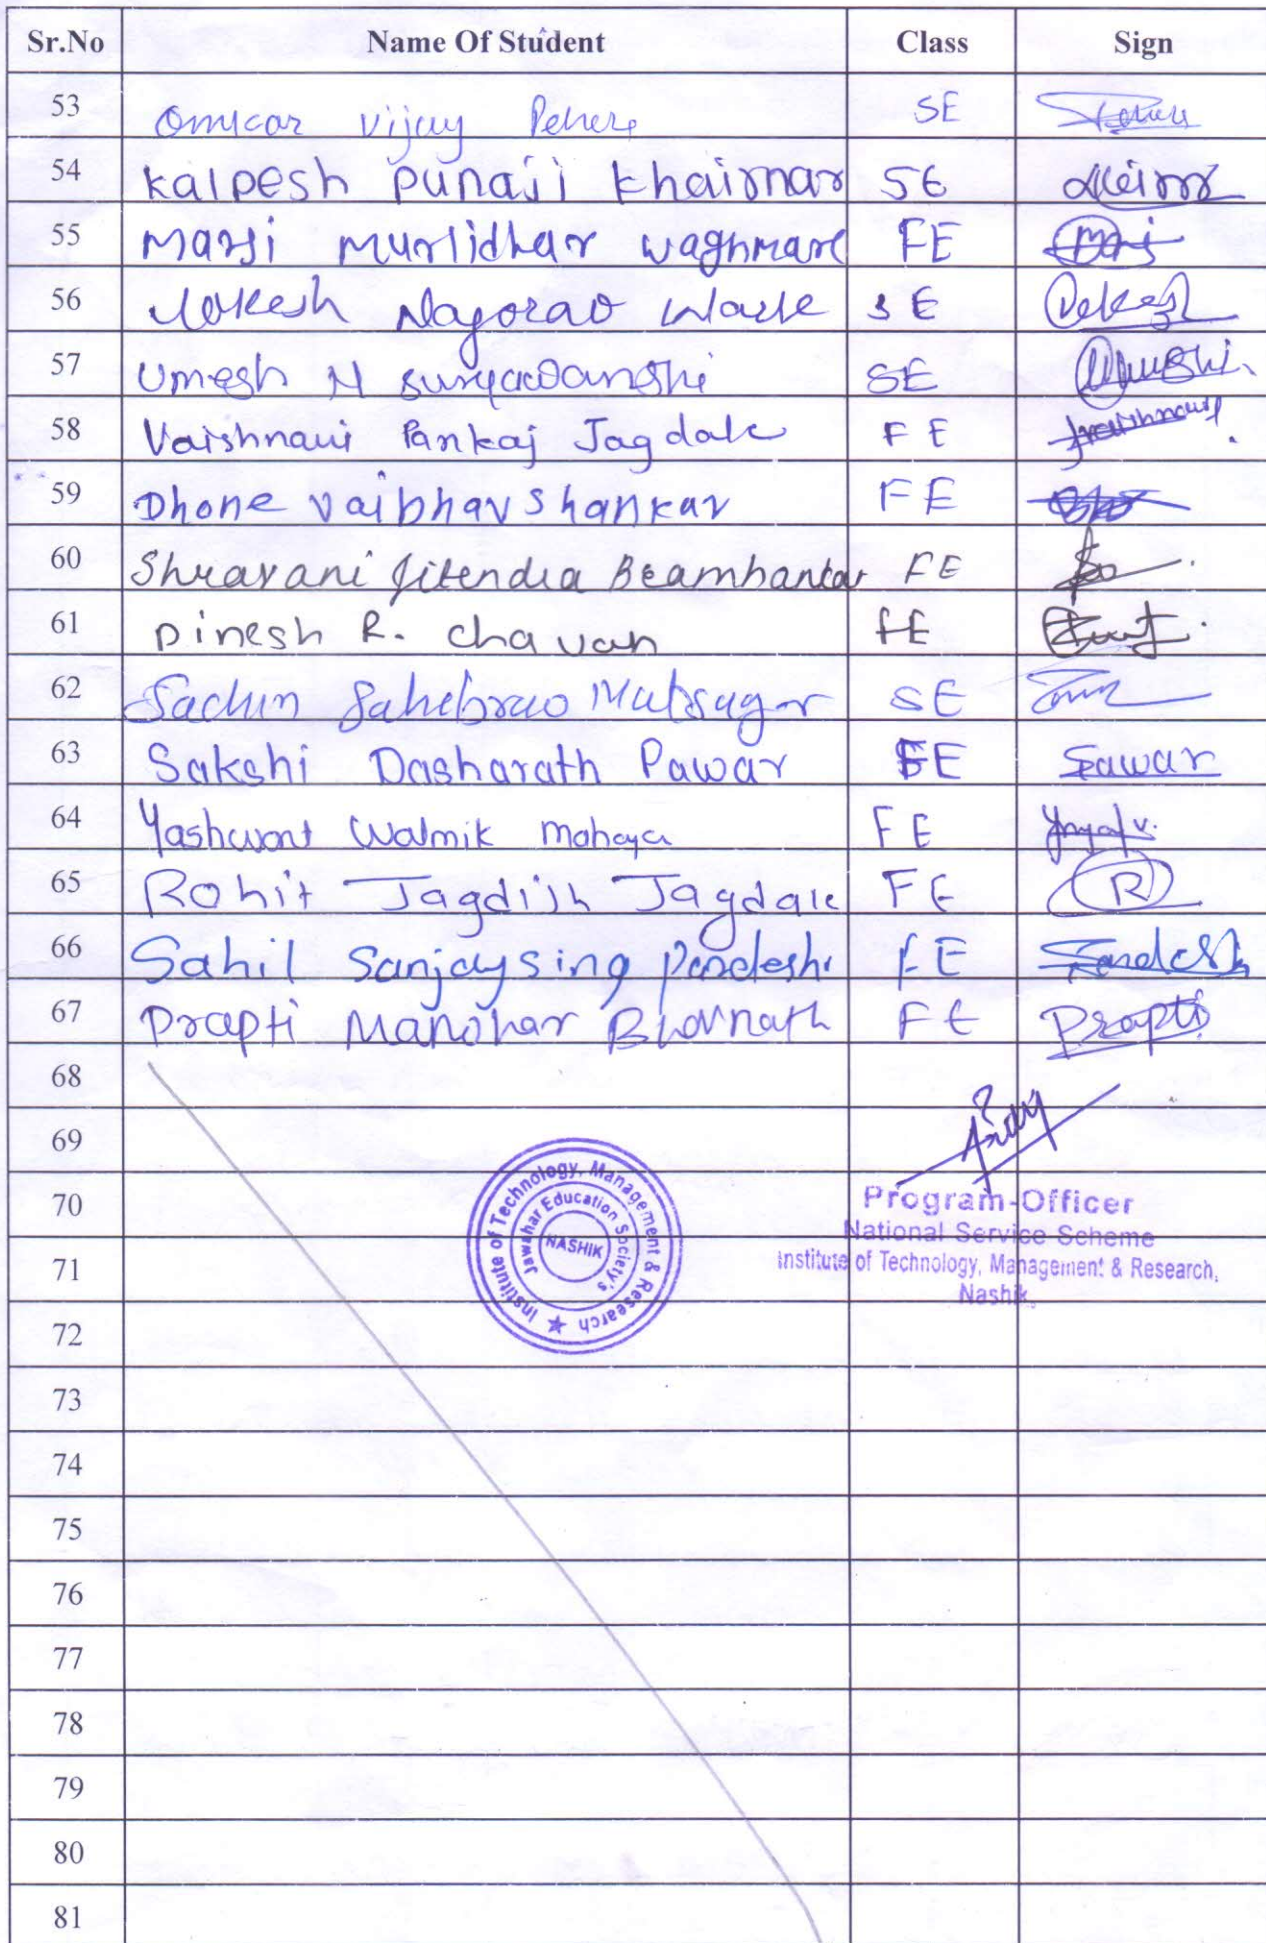 Sr.No Name Of Student Class Sign
53 Omkar Vijay Pehere SE
54 Kalpesh punaji khairnar SE
55 murlidhar waghmare FE
56 Lokesh Nagorao SE
57 Umesh N suryawanshi SE
58 Vaishnavi Pankaj Jagdale FE
59 Dhone vaibhav shankar FE
60 Shravani Jitendra Beamhankar FE
61 Dinesh R. chavan FE
62 Sachin Sahebrao Matsagar SE
63 Sakshi Dasharath Pawar FE Sawar
64 Yashwant Walmik FE
65 Rohit Jagdish Jagdale FE R
66 Sahil Sanjaysing Pardeshi FE
67 Prapti Manohar Bhornath FE Prapti
68
69
70
71
72
73
74
75
76
77
78
79
80
81
Institute of Technology, Management & Research ★
Jawahar Education Society's
NASHIK
Program-Officer
National Service Scheme
Institute of Technology, Management & Research,
Nashik.